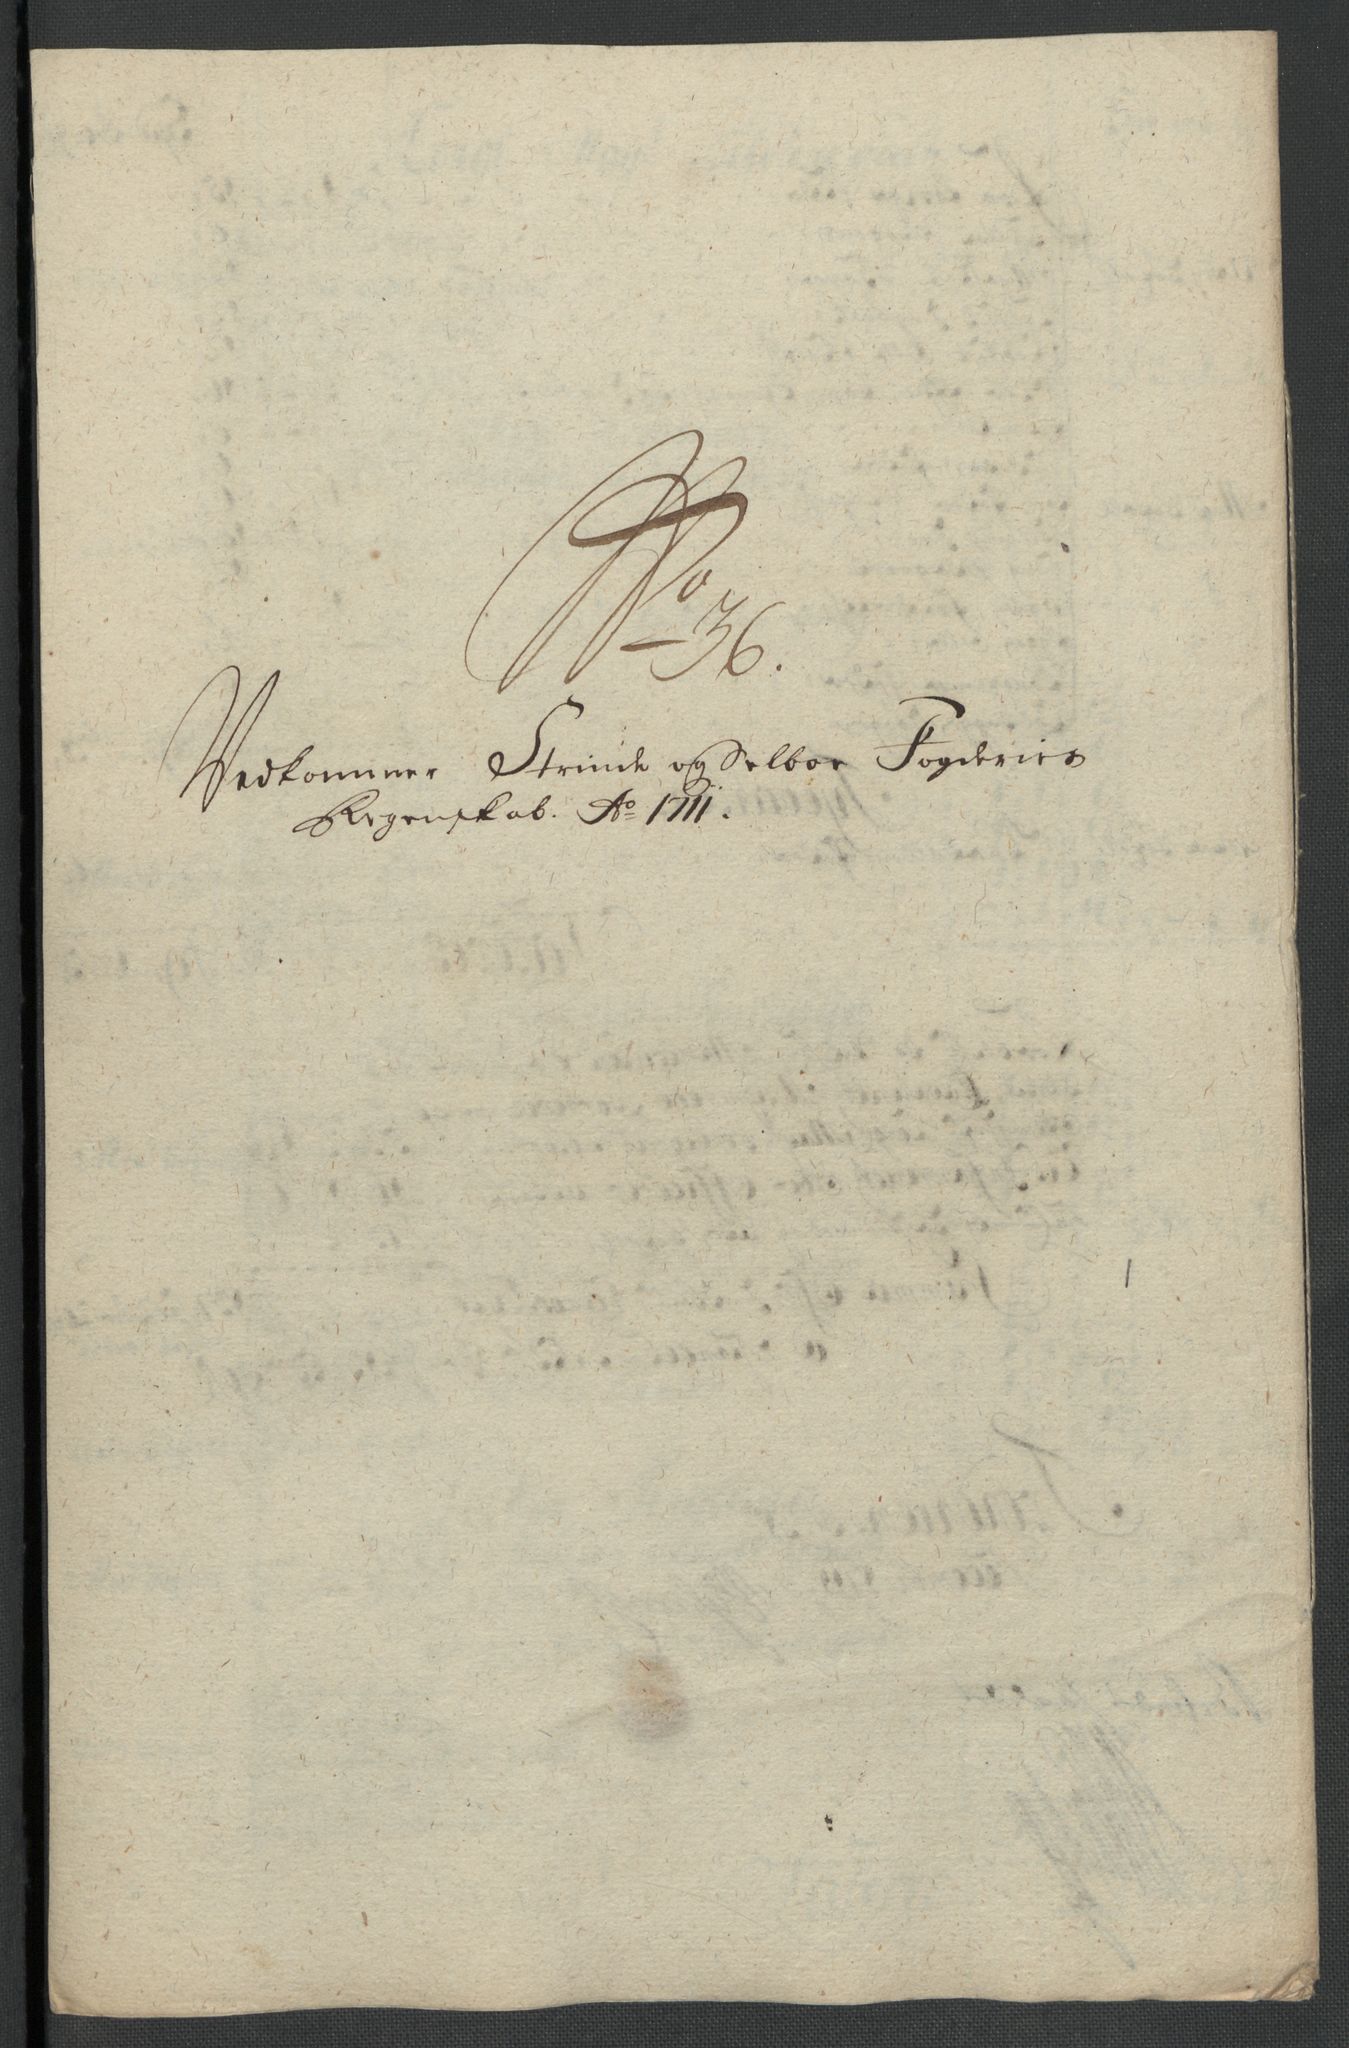 No
36.
Vedkommer Strinde og Selboe Fogderies
Regenskab. Ao 1711.